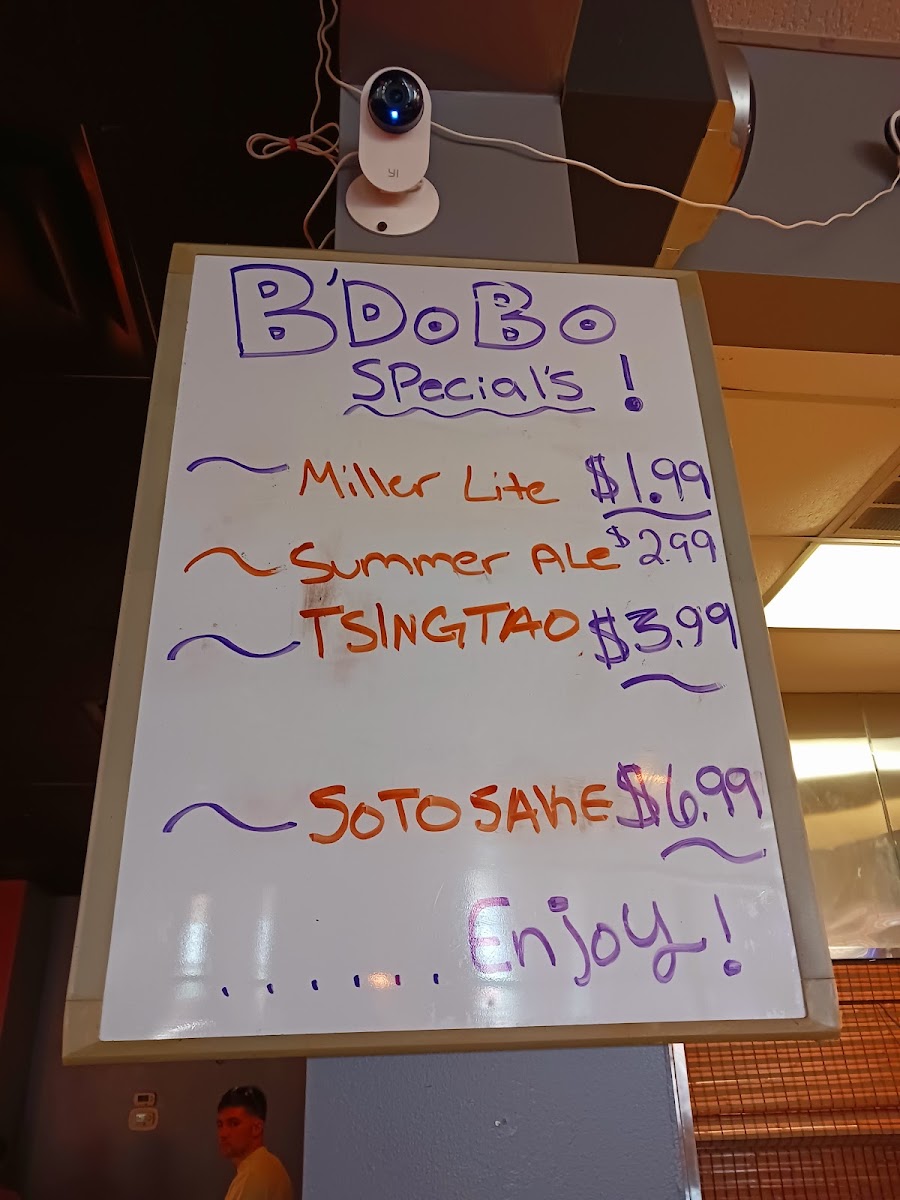 YI
B'DoBo
SPecial's !
~ Miller Lite $1.99
~ Summer ALe $2.99
~ TSINGTAO $3.99
~ SOTO SAKE $6.99
...... Enjoy!